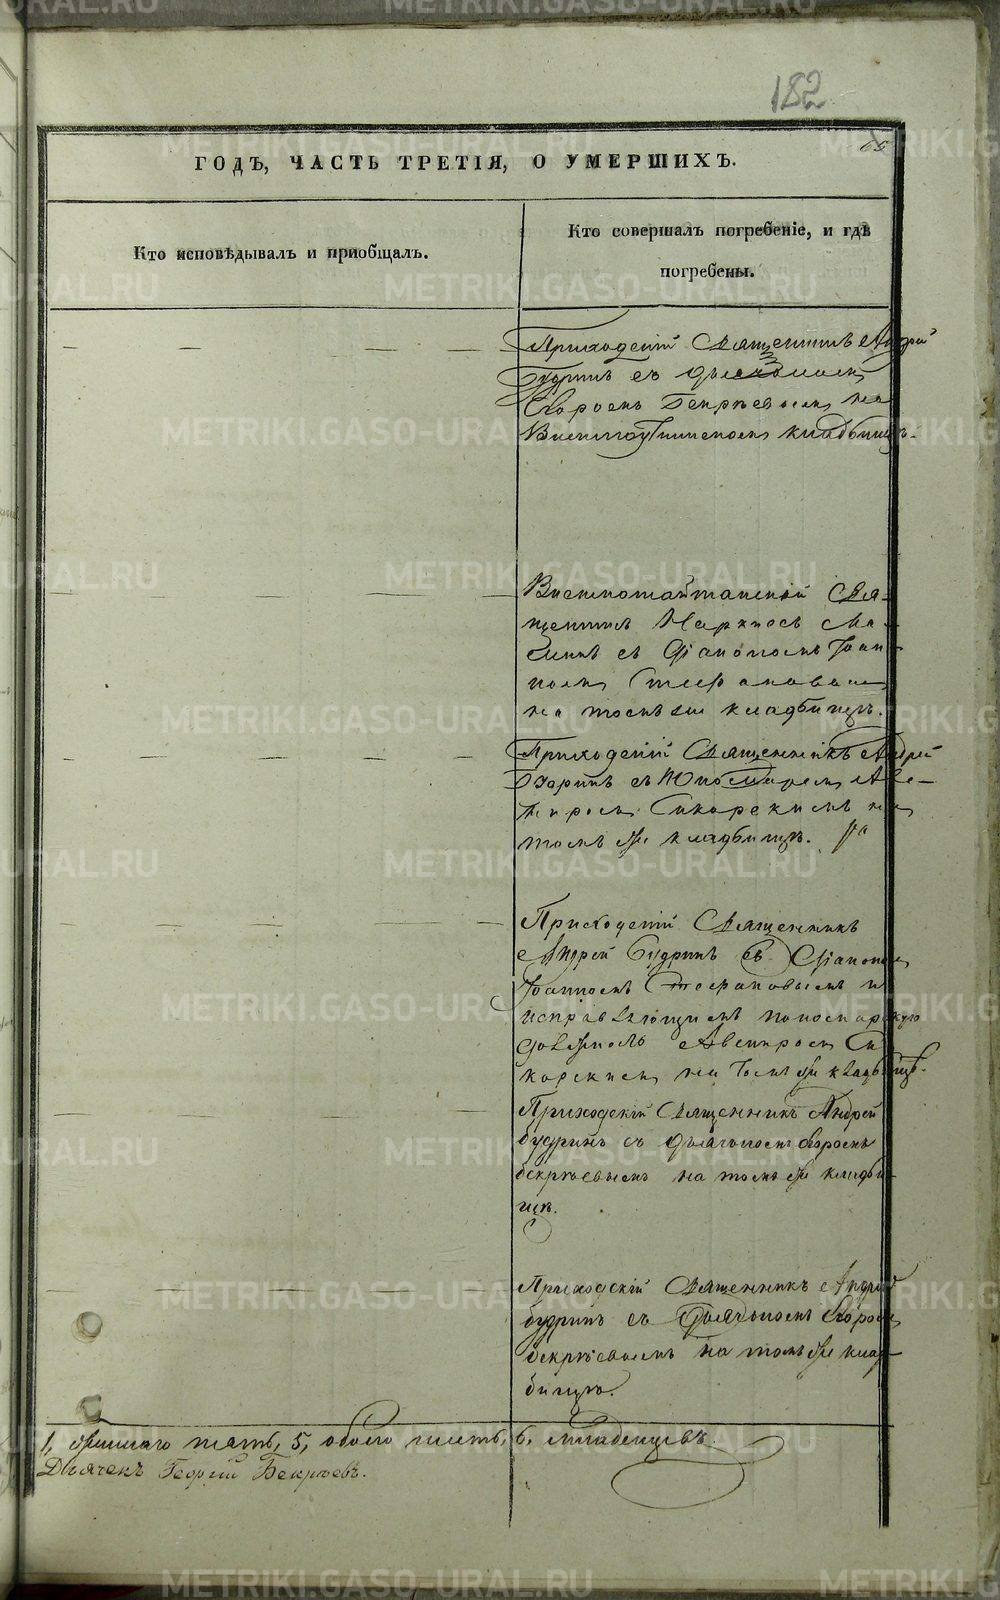 182
65
ГОДЪ, ЧАСТЬ ТРЕТІЯ, О УМЕРШИХЪ.
Кто исповѣдывалъ и приобщалъ.
Кто совершалъ погребеніе, и гдѣ
погребены.
Приходскій Священникъ Андрей
Будринъ съ
Егоромъ Бекрѣевымъ на
кладбищѣ.
Свя-
щенникъ
съ Діакономъ Іоан-
номъ Стефановымъ
на томъ же кладбищѣ.
Приходскій Священникъ Андрей
Будринъ съ Пономаремъ Аве-
нромъ Сикорскимъ на
томъ же кладбищѣ.
Приходскій Священникъ
Андрей Будринъ съ Діакономъ
Іоанномъ Стефановымъ и
исправляющимъ пономарскую
должность Авениромъ Си-
корскимъ на томъ же кладбищѣ.
Приходскій Священникъ Андрей
Будринъ съ дьячкомъ Егоромъ
Бекрѣевымъ на томъ же кладби-
щѣ.
Приходскій Священникъ Андрей
Будринъ съ Дьячкомъ Егоромъ
Бекрѣевымъ на томъ же клад-
бищѣ.
1, женскаго пять, 5, обоего шесть, 6, младенцевъ.
Дьячекъ Георгій Бекрѣевъ.
METRIKI.GASO-URAL.RU